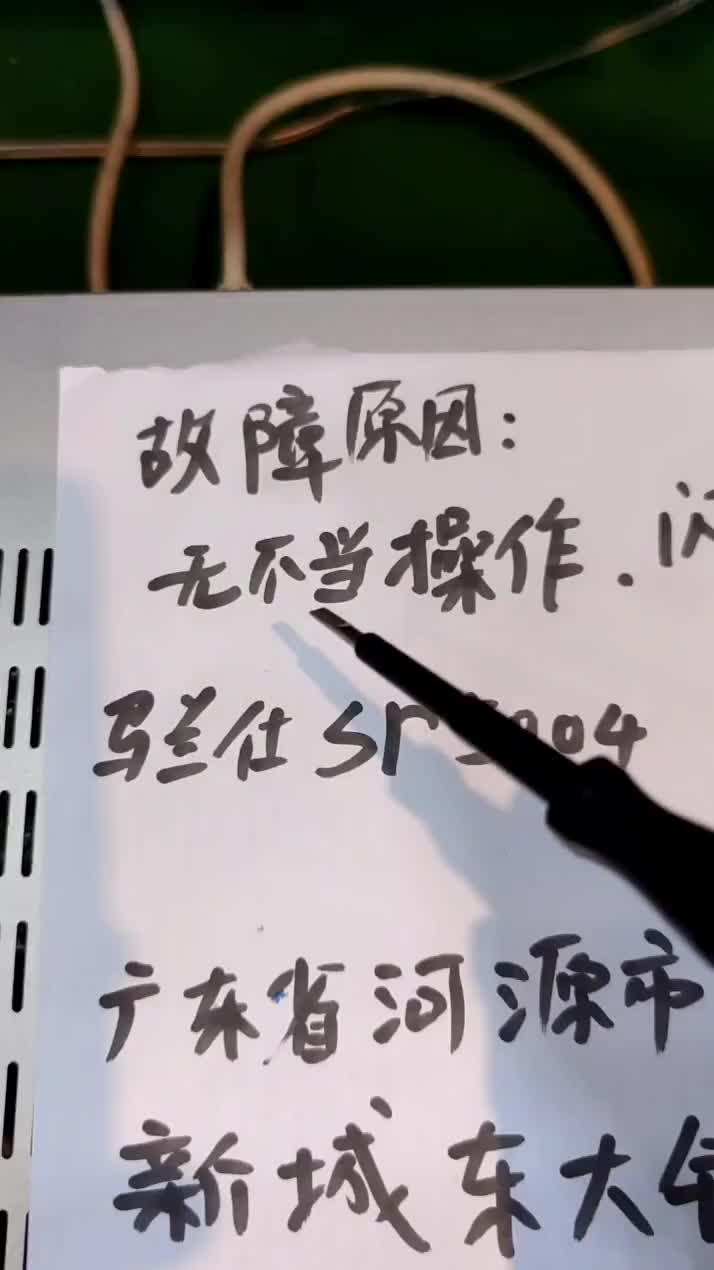 故障原因：
无不当操作.闪
马兰仕Sr5004
广东省河源市
新城东大